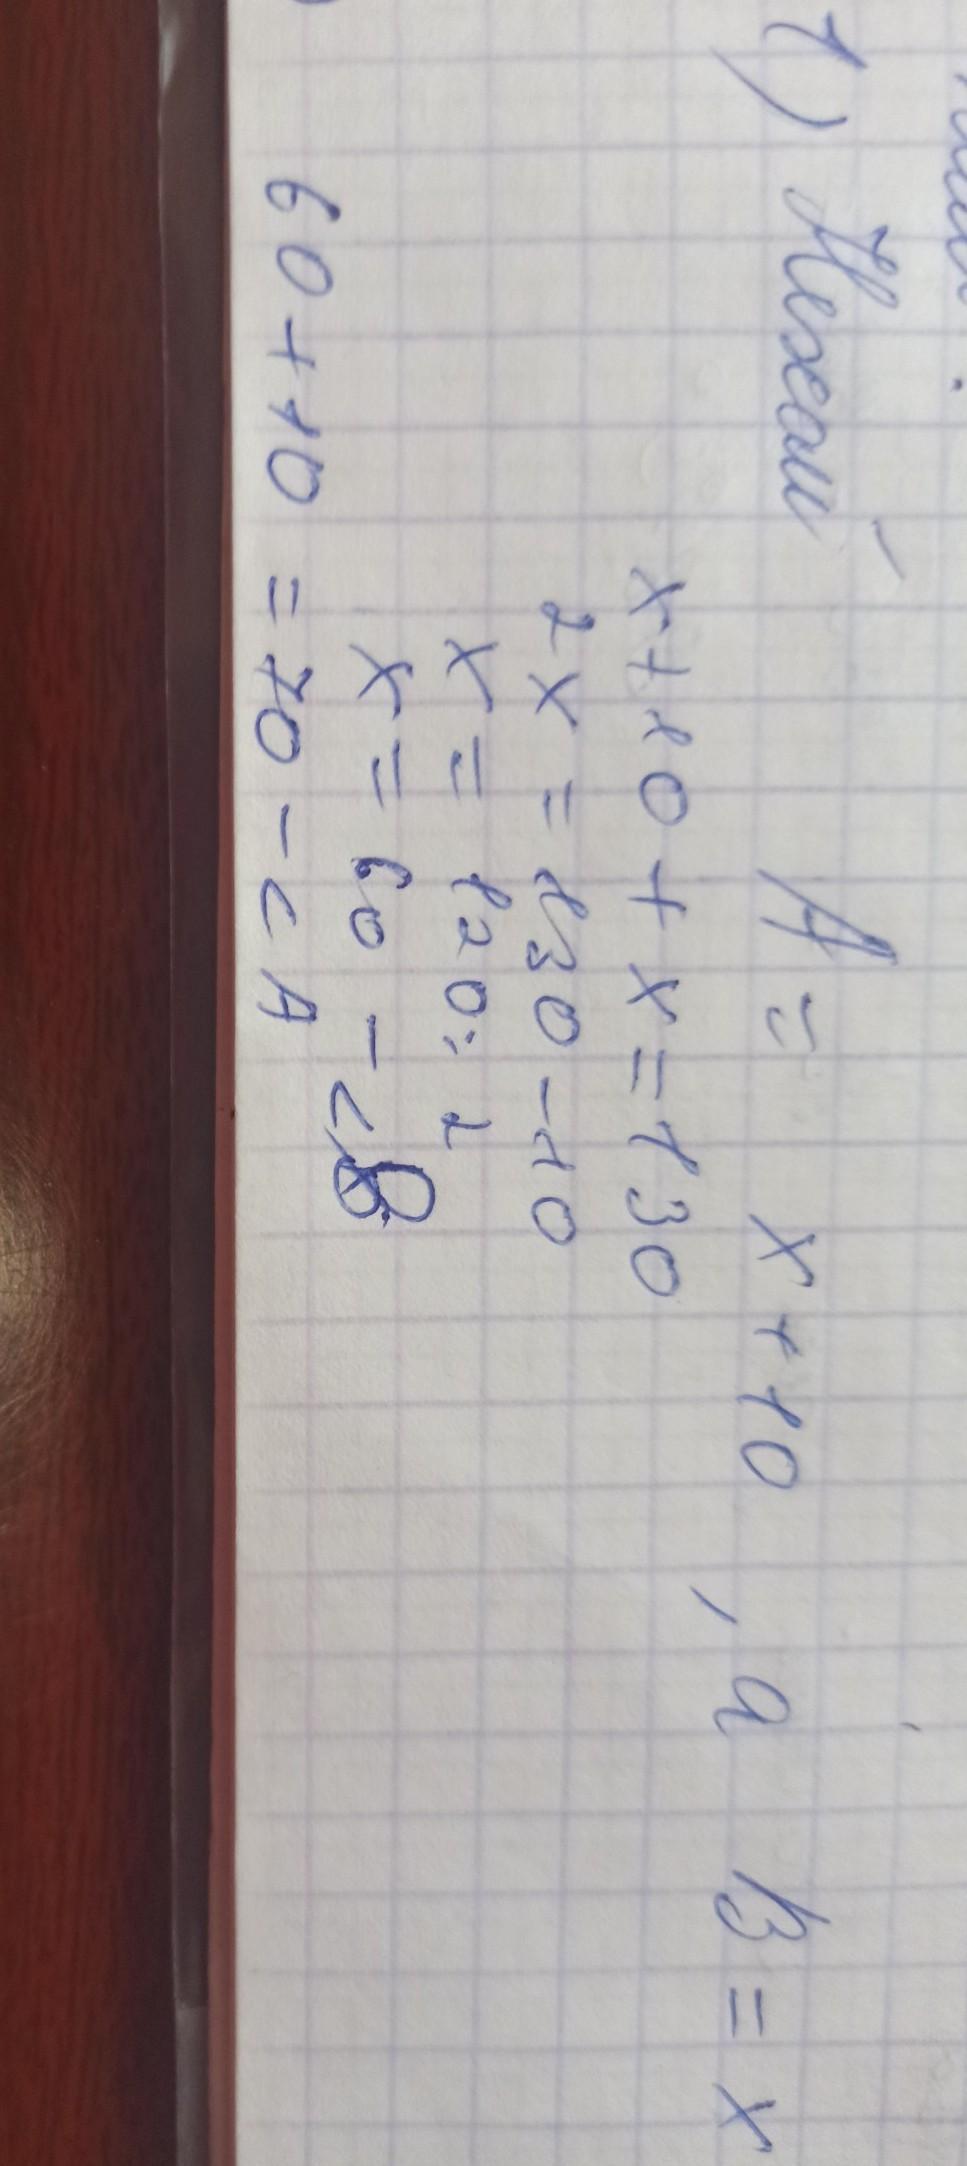 1) Нехай A = x + 10 , а B = x
x + 10 + x = 130
2x = 130 - 10
x = 120 : 2
x = 60 - ∠B
60 + 10 = 70 - ∠A